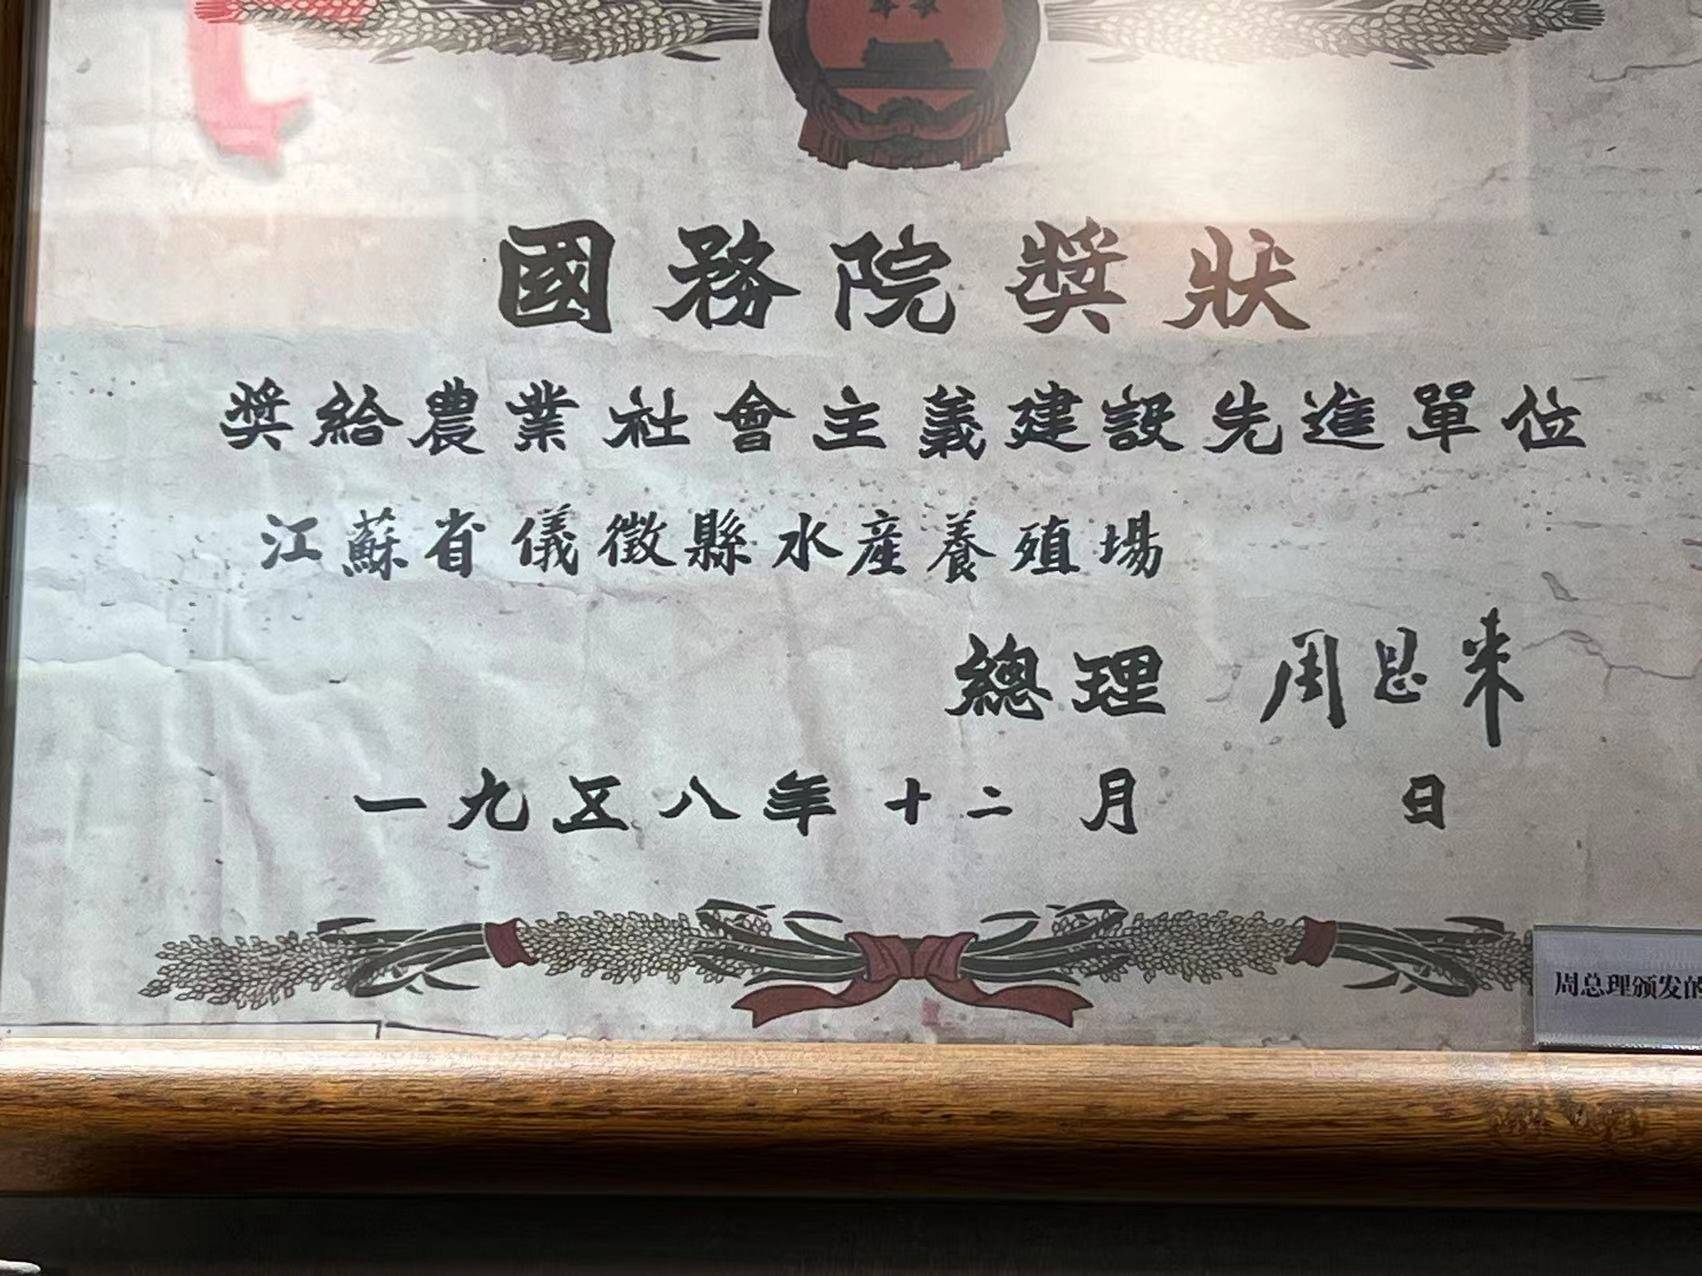 國務院獎狀
獎給農業社會主義建設先進單位
江蘇省儀徵縣水產養殖場
總理 周恩来
一九五八年十二月 日
周总理颁发的